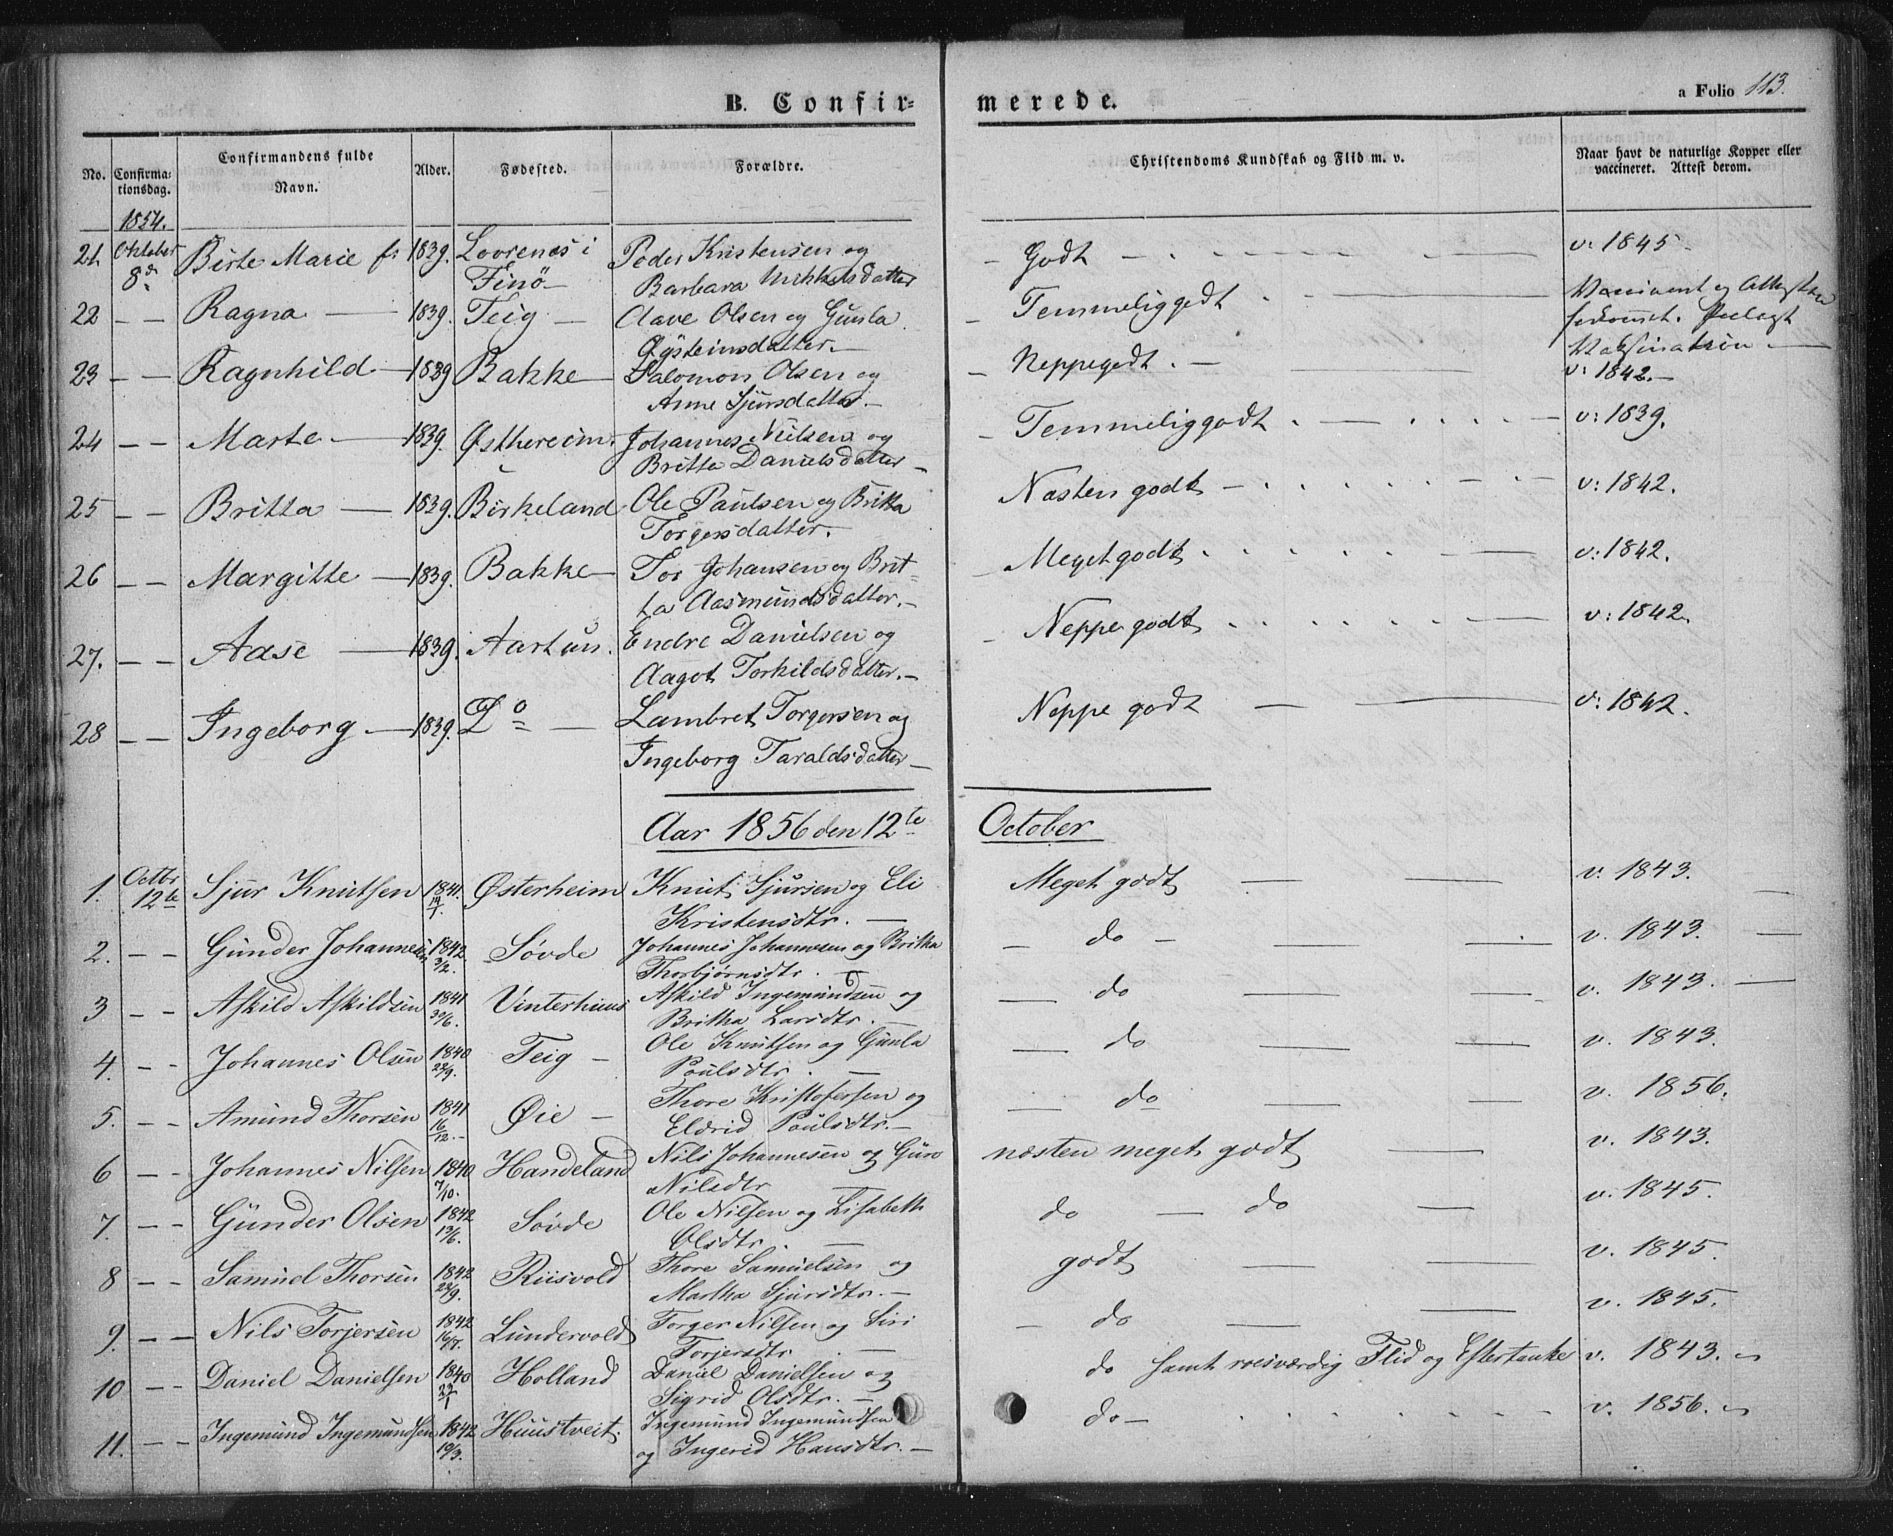 B. Confir-
merede.
a Folio 113.
No.
Confirma-
tionsdag.
Confirmandens fulde
Navn.
Alder.
Fødested.
Forældre.
Christendoms Kundskab og Flid m. v.
Naar havt de naturlige Kopper eller
vaccineret. Attest derom.
1854.
21. Oktober Birte Marie 1839. Lovrenes i Peder Kristensen og - Godt - v: 1845
8de Finö - Barbara Mikkelsdatter
22 - - Ragna - 1839. Teig - Aave Olsen og Gunla - Temmelig godt
Östeinsdatter. -
23 - - Ragnhild - 1839 Bakke - Salomon Olsen og - Neppe godt. - v: 1842. -
Anne Sjursdatter. -
24 - - Marte - 1839. Østhereim. Johannes Nielsen og - Temmelig godt - v: 1839.
Britta Danielsdatter -
25 - - Britta - 1839. Birkeland Ole Paulsen og Britta Næsten godt - v: 1842.
Torgersdatter.
26 - - Margitte - 1839. Bakke - Tor Johansen og Brit- - Meget godt v: 1842.
ta Aasmundsdatter. -
27. - - Aase - 1839. Aartun. Endre Danielsen og - Neppe godt v: 1842.
Aagot Torkildsdatter. -
28 - - Ingeborg - 1839. Do - Lambret Torgersen og Neppe godt - v: 1842.
Ingeborg Taraldsdatter -
Aar 1856 den 12te October
1. Octbr Sjur Knutsen 1841. Østerheim Knut Sjursen og Eli Meget godt - v. 1843.
12te 19/1 Kristensdtr. -
2. - - Gunder Johannessen 1842 Søvde Johannes Johannesen og Britha - do - v. 1843. -
3/2. Thorbjørnsdtr. -
3 - - Askild Askildsen 1841 Vinterhuus Askild Ingemundsen og - do - v. 1843. -
30/6. Britha Larsdtr. -
4. - - Johannes Olsen 1840 Teig - Ole Knutsen og Gunla - do - v. 1843.
22/9. Poulsdtr. -
5. - - Amund Thorsen 1841 Øie - Thore Kristofersen og - do - v. 1856.
16/12. - Eldrid Poulsdtr. -
6 - - Johannes Nilsen 1840 Handeland Nils Johannesen og Guro næsten meget godt - v. 1843.
7/10. Nilsdtr -
7. - - Gunder Olsen 1842 Søvde Ole Nilsen og Lisabeth do - do - v. 1845.
13/6. Olsdtr. -
8 - - Samuel Thorsen 1842 Riisvold Thore Samuelsen og godt - v. 1845.
22/9. Martha Sjursdtr. -
9. - - Nils Torjersen 1842 Lundervold Torger Nilsen og Siri - do - v. 1845.
Torjersdtr. -
10 - - Daniel Danielsen 1840 Holland Daniel Danielsen og do samt roesværdig Flid og Eftertanke v. 1843.
Sigrid Olsdtr. -
11. - - Ingemund Ingemundsen 1842 Huustveit. Ingemund Ingemundsen do - v. 1856.
19/3. og Ingerid Hansdtr. -